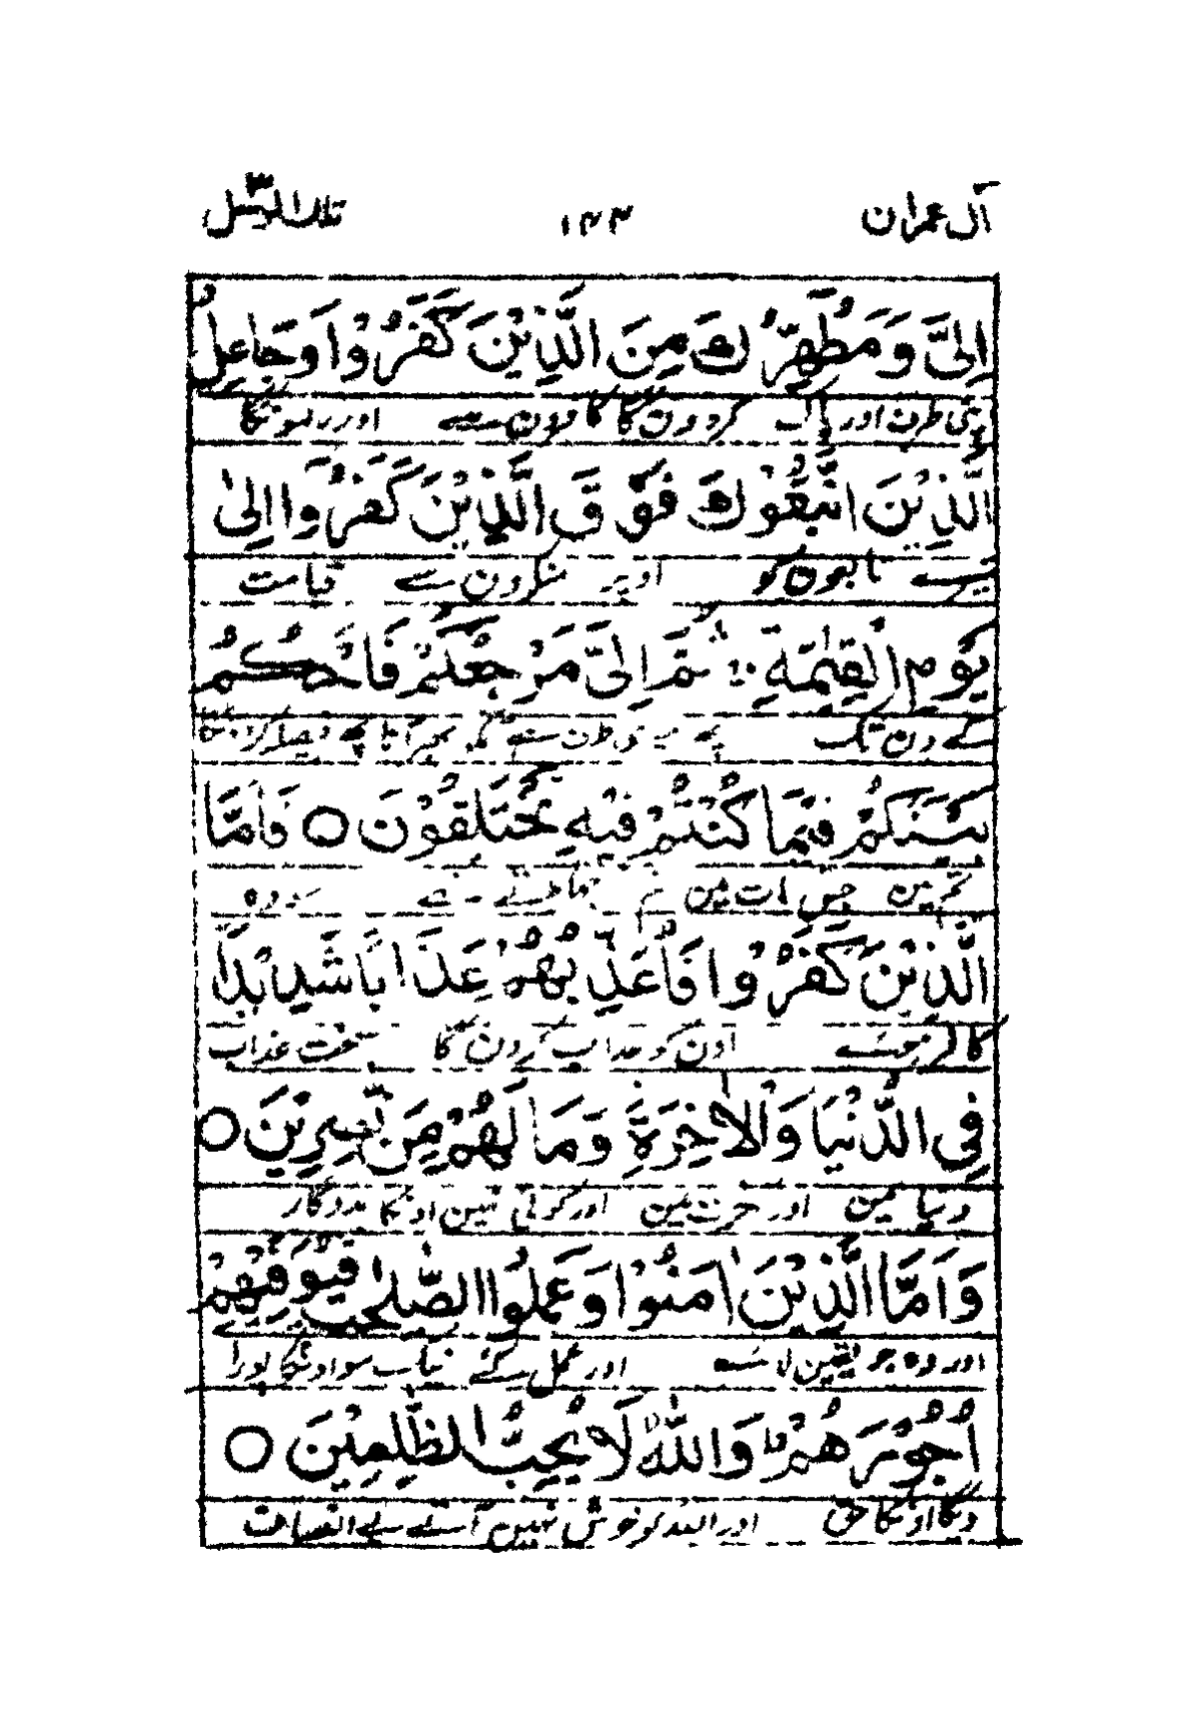 آل عمران ١٤٣ تلك الرسل
اِلَىَّ وَمُطَهِّرُكَ مِنَ الَّذِيْنَ كَفَرُوْا وَجَاعِلُ
اپنی طرف اور پاک کردوں گا کافروں سے اور رکھونگا
الَّذِيْنَ اتَّبَعُوْكَ فَوْقَ الَّذِيْنَ كَفَرُوْٓا اِلٰى
تیرے تابعون کو اوپر منکرون سے قیامت
يَوْمِ الْقِيٰمَةِ ۚ ثُمَّ اِلَىَّ مَرْجِعُكُمْ فَاَحْكُمُ
کے دن تک
بَيْنَكُمْ فِيْمَا كُنْتُمْ فِيْهِ تَخْتَلِفُوْنَ ○ فَاَمَّا
تم مین جس بات مین تم
الَّذِيْنَ كَفَرُوْا فَاُعَذِّبُهُمْ عَذَابًا شَدِيْدًا
کافر اون کو عذاب کرون گا سخت عذاب
فِى الدُّنْيَا وَالْاٰخِرَةِ وَمَا لَهُمْ مِنْ نّٰصِرِيْنَ ○
دنیا مین اور آخرت مین اور کوئی نہین اونکا مددگار
وَاَمَّا الَّذِيْنَ اٰمَنُوْا وَعَمِلُوا الصّٰلِحٰتِ فَيُوَفِّيْهِمْ
اور وہ جو یقین لائے اور عمل کئے نیک سو اونکا پورا
اُجُوْرَهُمْ ؕ وَاللّٰهُ لَا يُحِبُّ الظّٰلِمِيْنَ ○
دیگا اونکا حق اور اللہ کو خوش نہین آتے بے انصاف